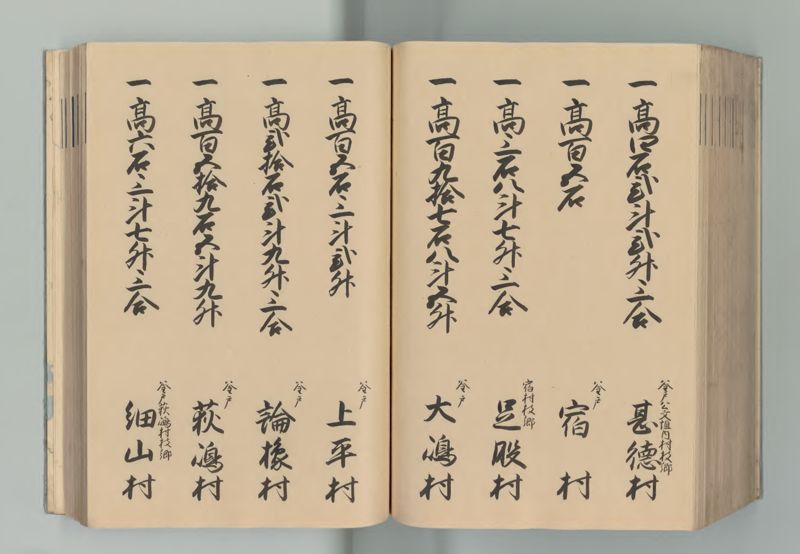 一高四石弐斗弐升三合
釜戸公文垣内村枝郷
甚徳村
一高百五石
釜戸
宿村
一高三石八斗七升三合
宿村枝郷
足股村
一高百九拾七石八斗五升
釜戸
大嶋村
一高百五石三斗弐升
釜戸
上平村
一高弐拾石弐斗九升三合
釜戸
論橡村
一高百五拾九石五斗九升
釜戸
萩嶋村
一高六石三斗七升三合
釜戸萩嶋村枝郷
細山村